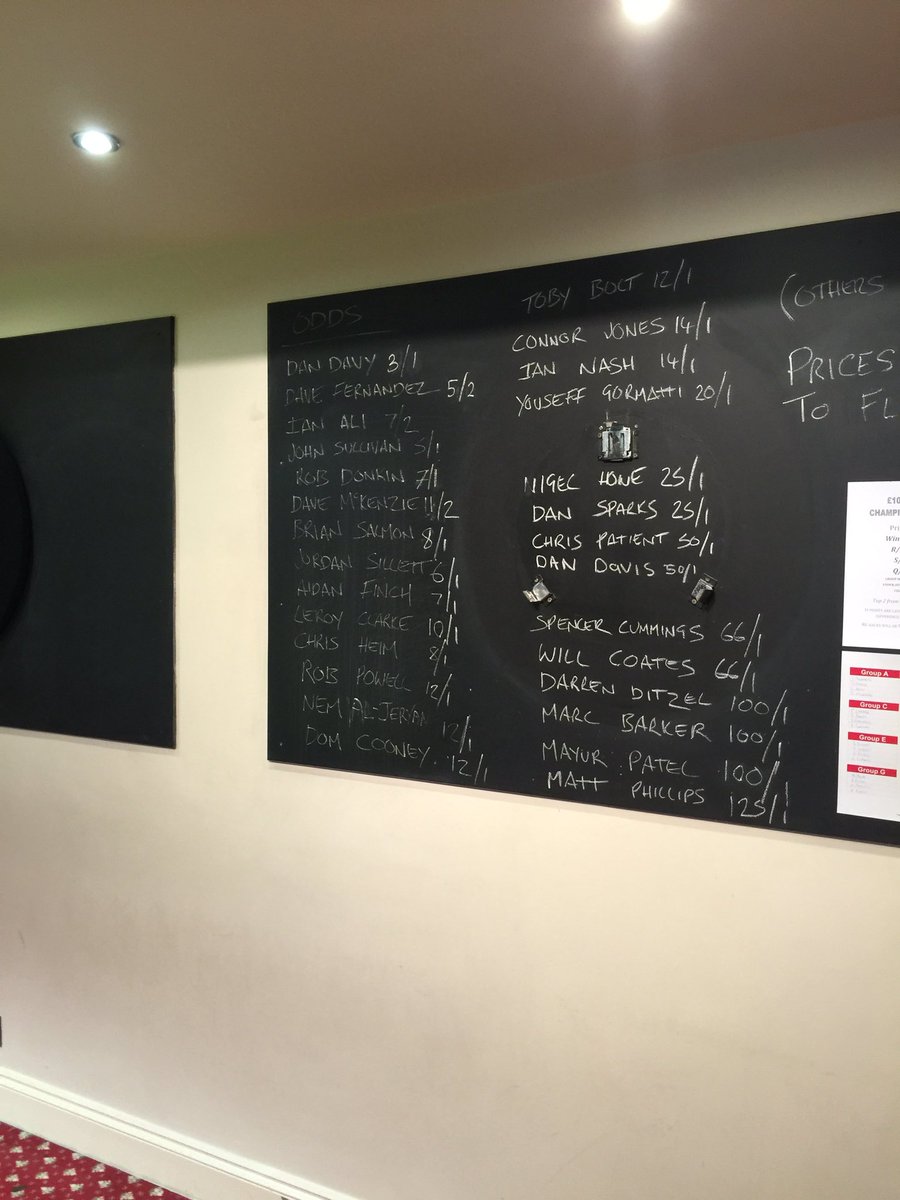 ODDS
DAN DAVY 3/1
DAVE FERNANDEZ 5/2
IAN ALI 7/2
JOHN SULLIVAN 5/1
ROB DONKIN 7/1
DAVE McKENZIE 11/2
BRIAN SALMON 8/1
JORDAN SILLETT 6/1
AIDAN FINCH 7/1
LEROY CLARKE 10/1
CHRIS HEIM 8/1
ROB POWELL 12/1
NEM 12/1
DOM COONEY 12/1
TOBY BOLT 12/1
CONNOR JONES 14/1
IAN NASH 14/1
YOUSEFF GORMATTI 20/1
NIGEL HONE 25/1
DAN SPARKS 25/1
CHRIS PATIENT 50/1
DAN DAVIS 50/1
SPENCER CUMMINGS 66/1
WILL COATES 66/1
DARREN DITZEL 100/1
MARC BARKER 100/1
MAYUR PATEL 100/1
MATT PHILLIPS 125/1
(OTHERS
PRICES
TO FL
£10
CHAMP
Group A
Group C
Group E
Group G